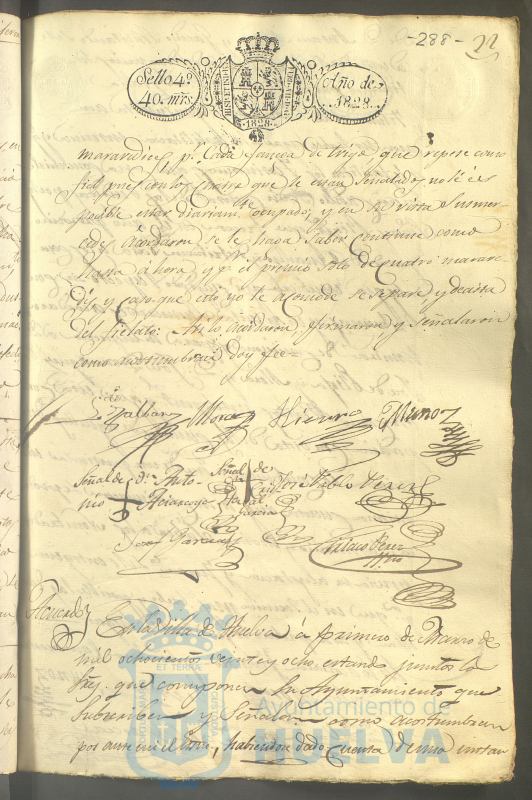 -288- 22
Sello 4º
40. mrs.
HISPET IND R
1828.
Año de
1828.
maravedices, pr. Cada fanega de trigo, que repese como
fiel pues con los Cuatro que le estan Señalados no le es
posible estar diariamte. ocupado, y en su vista Sus mer-
cedes Acordaron se le haga Saber continue como
hasta áhora, y pr. el precio solo de Cuatro marave
dis, y Caso que esto no le acomode se separe, y decista
del fielato: Asi lo acordaron firmaron y Señalaron
como acostumbran doy fee-
Mora Hierro Munoz
Señal de Dn. Anto-
nio
Señal de
Cris-
tobal
Garcia
José Pablo Perez
José Garcia
Perez
Acuerdo
En la Villa de Huelva á primero de Marzo de
mil ochocientos veinte y ocho estando juntos los
Sres. que componen Su Ayuntamiento que
Subscriben y Señalan como acostumbran
por ante mi el Esno. habiendose dado Cuenta de una instan
ET TERRA
Ayuntamiento de
HUELVA